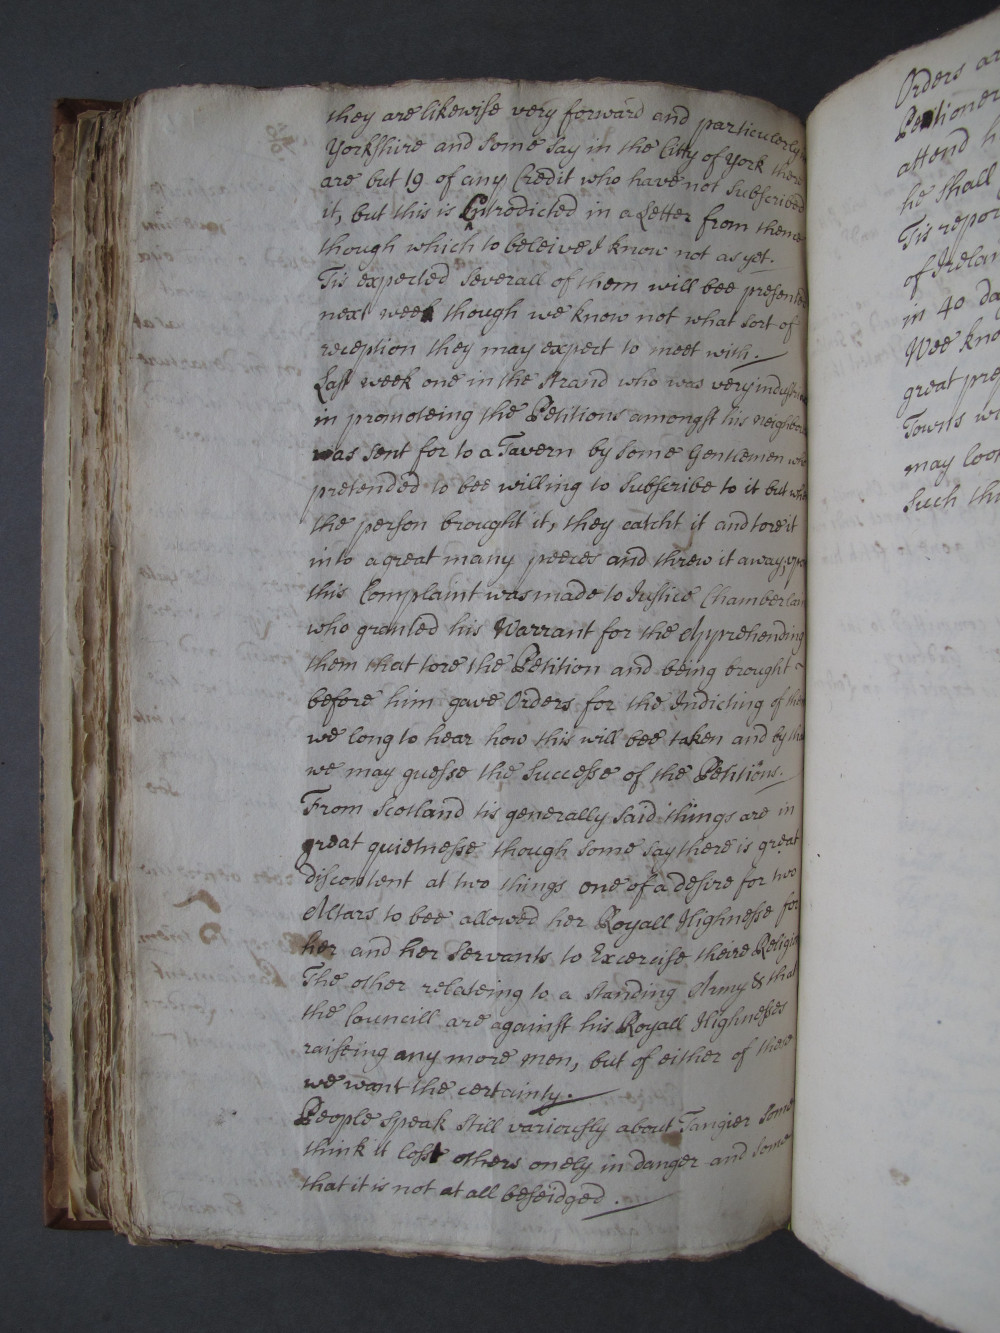 they are likewise very forward and particulerly
Yorkshire and some say in the Citty of York there
are but 19 of any Credit who have not subscribed
it, but this is Cntrodicted in a Letter from thence
though which to beleive I know not as yet.
Tis expected severall of them will bee presente
next week though we know not what sort of
reception they may expect to meet with.
Last week one in the Strand who was very industri
in promoteing the Petitions amongst his neighbo
was sent for to a Tavern by some Gentlemen who
pretended to bee willing to subscribe to it but when
the person brought it, they catcht it and tore it
into a great many peeces and threw it away, upo
this Complaint was made to Justice Chamberlain
who granted his Warrant for the Apprehending
them that tore the Petition and being brought
before him gave Orders for the Indicting of them
we long to hear how this will bee taken and by that
we may guesse the successe of the Petitions.
From Scotland tis generally said things are in
great quietnesse though some say there is great
discontent at two things one of a desire for two
Altars to bee allowed her Royall Highnesse for
her and her servants to Excercise theire Religion
The other relateing to a standing Army & that
the Councill are against his Royall Highnesses
raiseing any more men, but of either of these
we want the certainty.
People speak still variously about Tangier some
think it lost others onely in danger and some
that it is not at all beseidged.
Orders ar
Petitioner
attend h
he shall
Tis repor
of Irelan
in 40 da
Wee kno
great pre
Towns w
may loo
such th